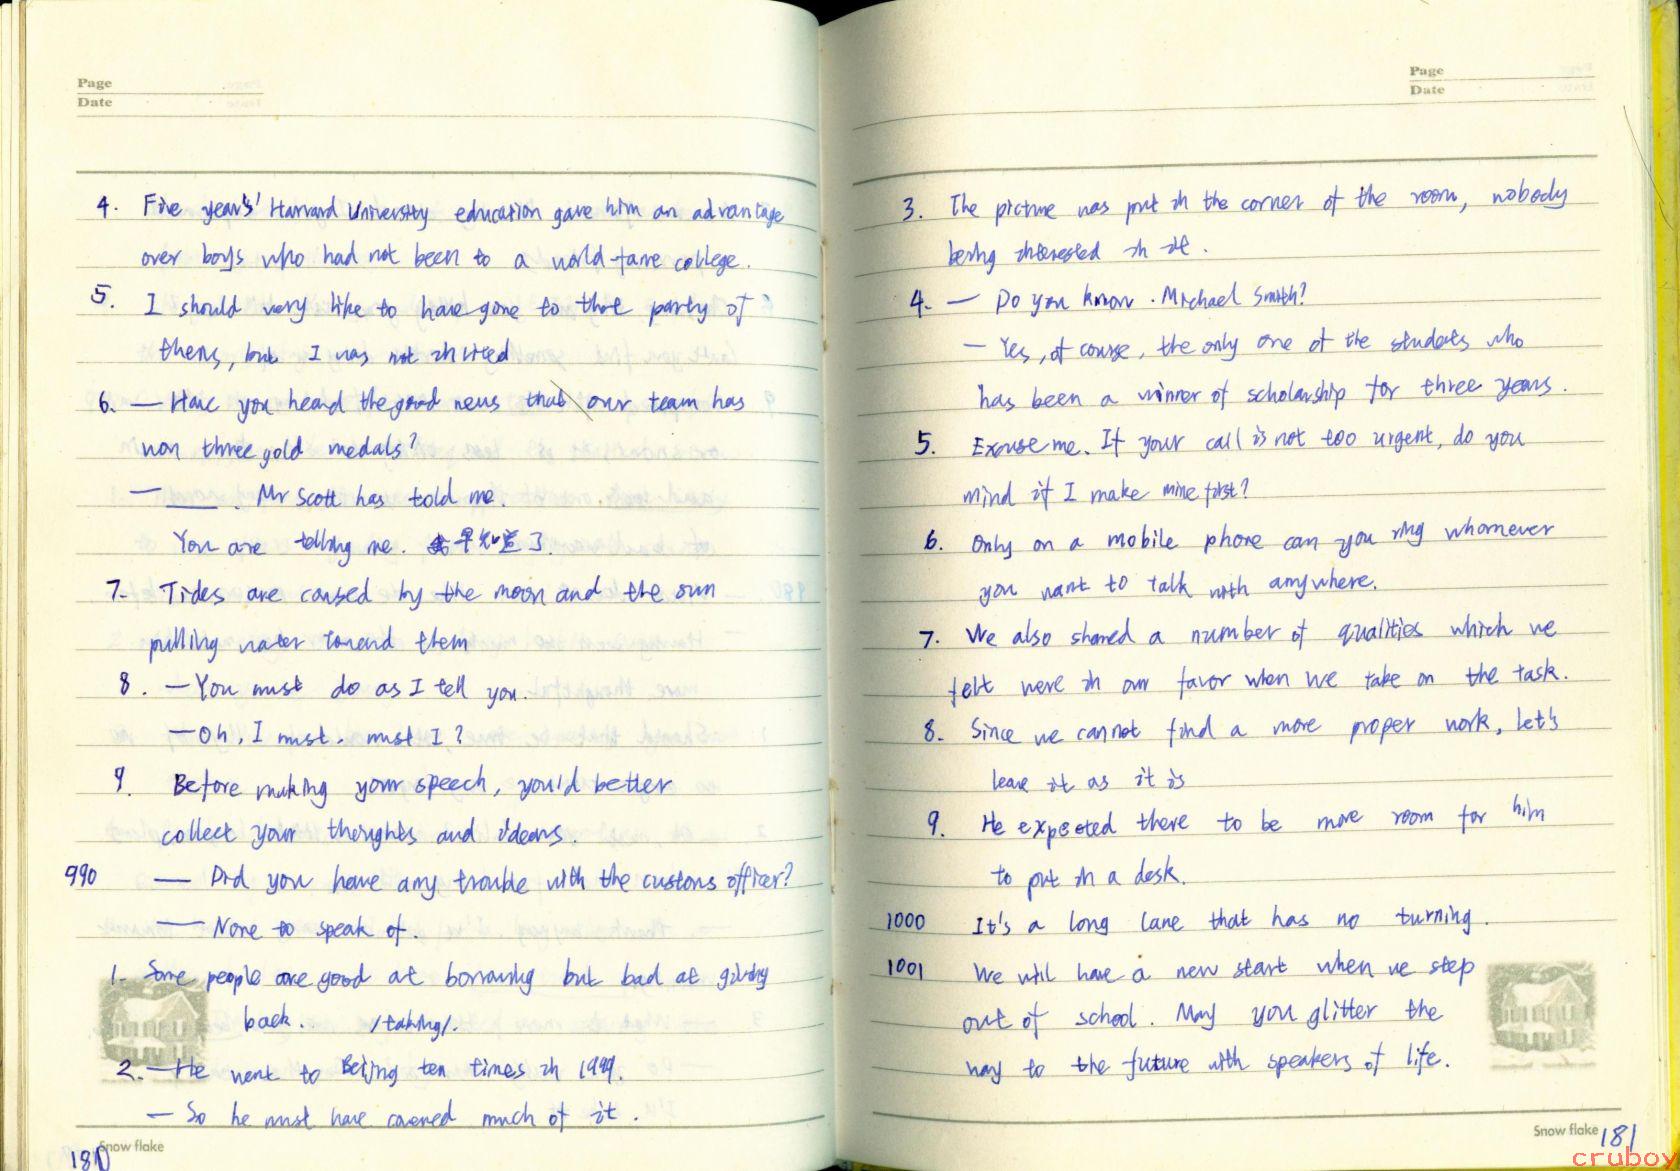 Page
Date
4. Five years' Harvard University education gave him an advantage
over boys who had not been to a world-fame college.
5. I should very like to have gone to that party of
theirs, but I was not invited
6. — Have you heard the good news that our team has
won three gold medals?
— ____. Mr Scott has told me.
You are telling me. 早知道了.
7. Tides are caused by the moon and the sun
pulling water toward them
8. — You must do as I tell you.
— Oh, I must, must I?
9. Before making your speech, you'd better
collect your thoughts and ideas.
990 — Did you have any trouble with the customs officer?
— None to speak of.
1. Some people are good at borrowing but bad at giving
back. /taking/.
2. — He went to Beijing ten times in 1999.
— So he must have covered much of it.
Snow flake
180
Page
Date
3. The picture was put in the corner of the room, nobody
being interested in it.
4. — Do you know. Michael Smith?
— Yes, of course, the only one of the students who
has been a winner of scholarship for three years.
5. Excuse me. If your call is not too urgent, do you
mind if I make mine first?
6. Only on a mobile phone can you ring whomever
you want to talk with anywhere.
7. We also shared a number of qualities which we
felt were in our favor when we take on the task.
8. Since we cannot find a more proper work, let's
leave it as it is
9. He expected there to be more room for him
to put in a desk.
1000 It's a long lane that has no turning.
1001 We will have a new start when we step
out of school. May you glitter the
way to the future with speakers of life.
Snow flake 181
cruboy